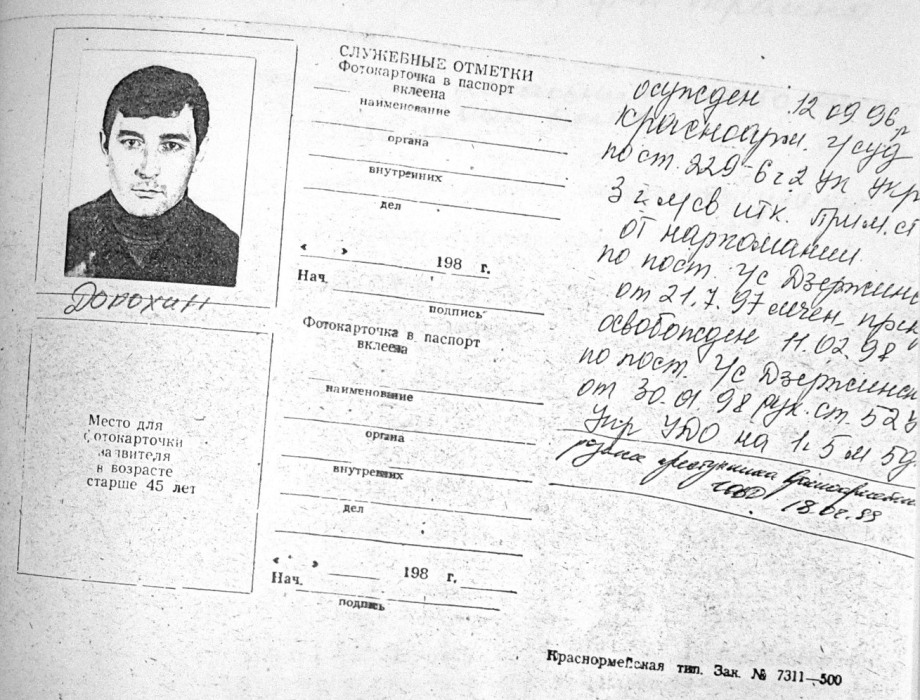 СЛУЖЕБНЫЕ ОТМЕТКИ
Фотокарточка в паспорт
вклеена
наименование
органа
внутренних
дел
« » 198 г.
Нач.
подпись
Дорохин
Фотокарточка в паспорт
вклеена
наименование
органа
внутренних
дел
« » 198 г.
Нач.
подпись
Место для
фотокарточки
заявителя
в возрасте
старше 45 лет
осужден 12 09 96 г
Красноарм. г/суд
по ст. 229-6 ч 2 ук укр
3 г м/св итк. Прим. ст
от наркомании.
по пост. г/с Дзержинс
от 21.7.97
освобожден 11.02.98
по пост. г/с Дзержинск
от 30.01 98 рук. ст. 52
укр УДО на 1г. 5 м 5д
18.02.99
Краснормейская тип. Зак. № 7311—500